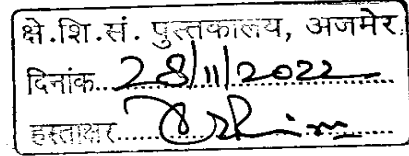 क्षे.शि.सं. पुस्तकालय, अजमेर
दिनांक..28/11/2022
हस्ताक्षर